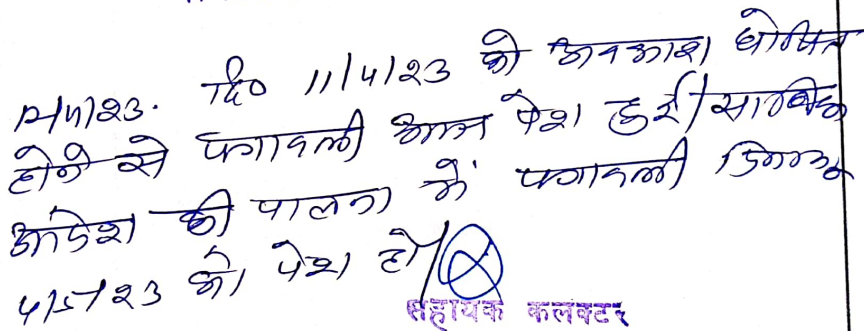 12/4/23. दि० 11/4/23 को अवकाश घोषित
होने से पत्रावली आज पेश हुई। साबिक
आदेश की पालना में पत्रावली दिनांक
4/5/23 को पेश हो।
सहायक कलक्टर